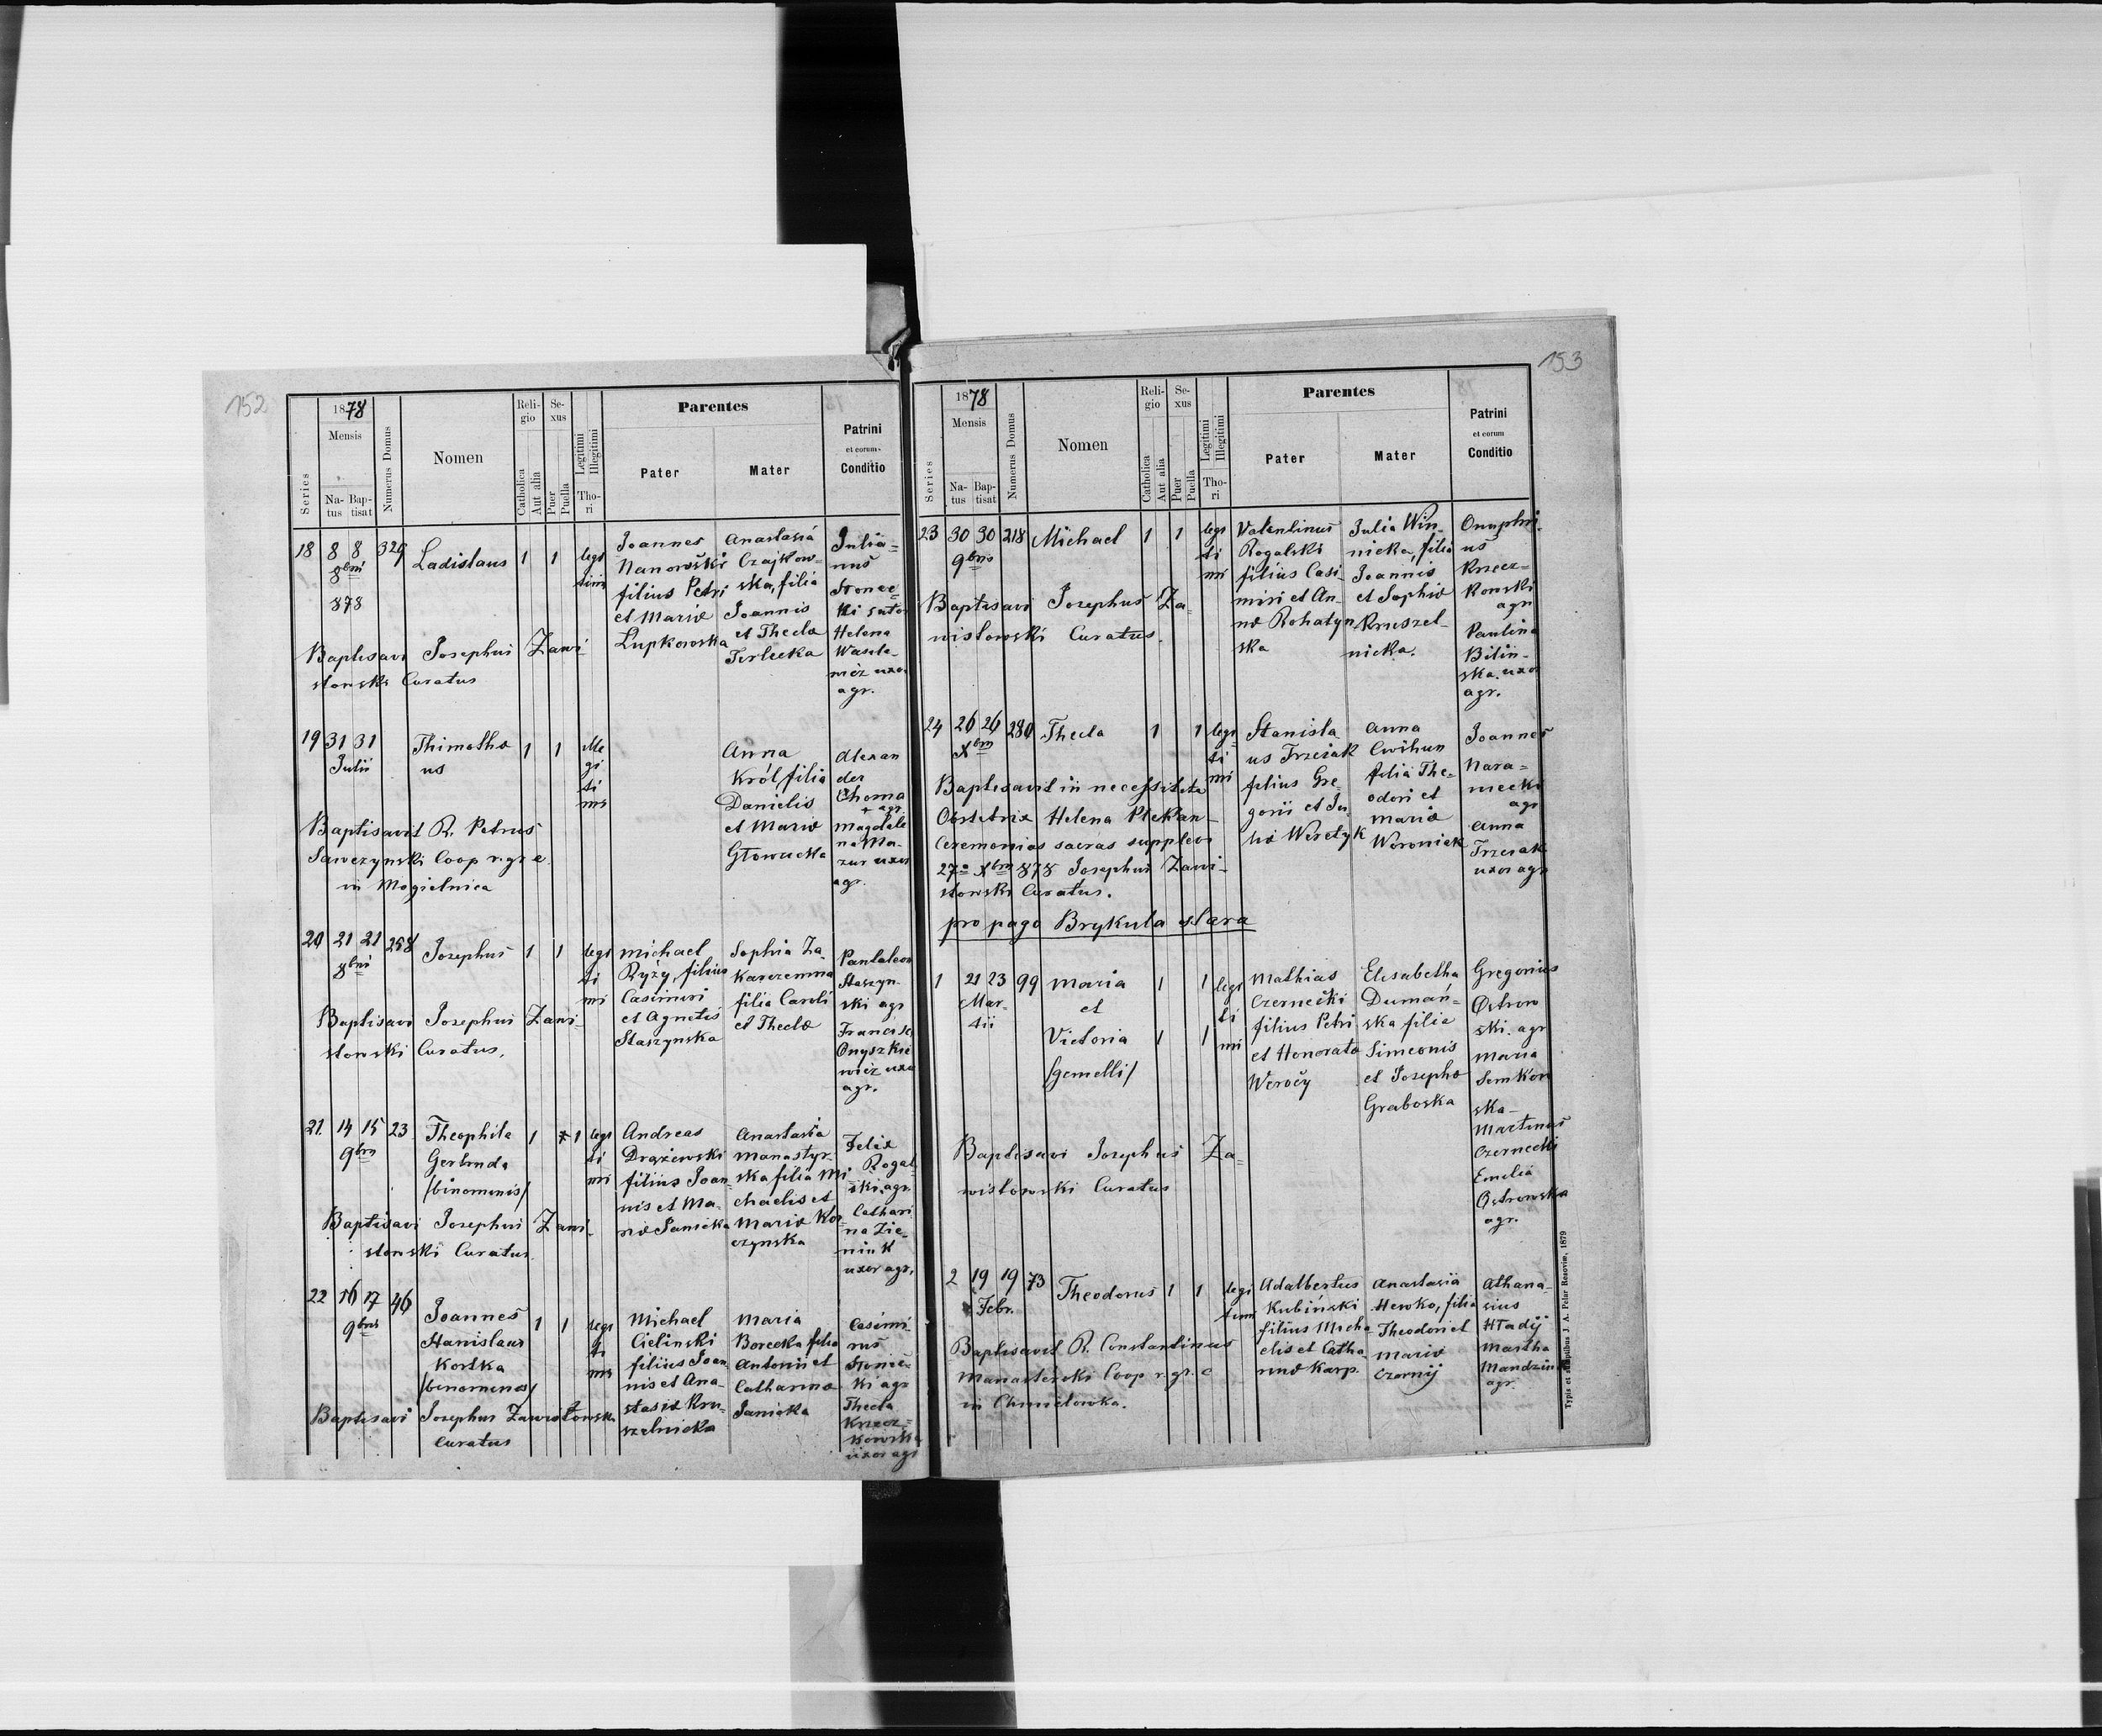 152
1878
Mensis
Series
Na-
tus
Bap-
tisat
Numerus Domus
Nomen
Reli-
gio
Catholica
Aut alia
Se-
xus
Puer
Puella
Legitimi
Illegitimi
Tho-
ri
Parentes
Pater
Mater
Patrini
et eorum
Conditio
18 8 8 329 Ladislaus 1 1 legi
8bris
878
timi
Joannes
Nanowski
filius Petri
et Mariæ
Lupkowska
Anastasia
Czajkow-
ska, filia
Joannis
et Theclæ
Terlecka
Julia=
nus
sutor
Helena
Wasile-
wicz uxor
agr.
Baptisavi Josephus Zawi-
stowski Curatus
19 31 31 Thimothe
us 1 1 Ille
gi
ti
mi
Julii
Anna
Król, filia
Danielis
et Mariæ
Głowacka
Alexan
der
Choma
agr.
Magdale
na Ma-
zur uxor
agr.
Baptisavit R. Petrus
Sawczynski Coop r. gr. c.
in Mogielnica
20 21 21 258 Josephus 1 1 legi
ti
mi
8bris
Michael
Ryży, filius
Casimiri
et Agnetis
Staszynska
Sophia Za-
karczemna
filia Caroli
et Theclæ
Pantaleon
Staszyn-
ski agr
Francisc
Onyszkie
wicz uxor
agr.
Baptisavi Josephus Zawi-
stowski Curatus.
21. 14 15 23 Theophila 1 1 legi
ti
mi
9bris
Gertruda
/binominis/
Andreas
Drążewski
filius Joan-
nis et Ma-
riæ Janicka
Anastasia
Manastyr-
ska filia Mi
chaelis et
Mariæ Kor-
czynska
Felix
Rogal-
ski agr.
Cathari
na Zie-
niuk
uxor agr.
Baptisavi Josephus Zawi-
stowski Curatus.
22 16 17 46 Joannes 1 1 legi
ti
mi
9bris
Stanislaus
Kostka
/binominis/
Michael
Cielinski
filius Joan
nis et Ana-
stasiæ Kru-
szelnicka
Maria
Borecka filia
Antonii et
Catharinæ
Janicka
Casimi-
rus
agr
Thecla
Kniecz=
kowska
uxor agr
Baptisavi Josephus Zawistowski
Curatus
153
1878
Mensis
Series
Na-
tus
Bap-
tisat
Numerus Domus
Nomen
Reli-
gio
Catholica
Aut alia
Se-
xus
Puer
Puella
Legitimi
Illegitimi
Tho-
ri
Parentes
Pater
Mater
Patrini
et eorum
Conditio
23 30 30 218 Michael 1 1 legi
ti
mi
9bris
Valentinus
Rogalski
filius Casi-
miri et An-
næ Rohatyn
ska
Julia Win-
nicka, filia
Joannis
et Sophiæ
Kruszel-
nicka.
Onuphri-
us
Kniecz=
kowski
agr
Paulina
Bilin-
ska uxor
agr.
Baptisavi Josephus Za-
wistowski Curatus.
24 26 26 280 Thecla 1 1 legi
ti
mi
Xbris
Stanisla
us Trzeciak
filius Gre-
gorii et Ju
liæ Weretyk
Anna
Cwihun
filia The-
odori et
Mariæ
Woroniak
Joannes
Nara=
niecki
agr
Anna
Trzeciak
uxor agr
Baptisavit in necessitate
Obstetrix Helena Plekan-
Ceremonias sacras supplevi
27a Xbris 878 Josephus Zawi-
stowski Curatus.
pro pago Brykula stara
1 21 23 99 Maria 1 1 legi
ti
mi
Mar-
tii
et
Victoria 1 1
/gemelli/
Mathias
Czernecki
filius Petri
et Honorata
Weroćy
Elisabetha
Dumań-
ska filia
Simeonis
et Josepha
Graboska
Gregorius
Ostrow
ski. agr
Maria
Semkow
ska-
Martinus
Czernecki
Emilia
Ostrowska
agr.
Baptisavi Josephus Za=
wistowski Curatus
2 19 19 73 Theodorus 1 1 legi
timi
Febr.
Adalbertus
Kubiński
filius Micha
elis et Catha-
rinæ Karp.
Anastasia
Hewko, filia
Theodori et
Mariæ
Czornij
Athana-
sius
Hładij
Martha
agr.
Baptisavit R. Constantinus
Manasterski Coop r. gr. c
in Chmielowka.
Typis et sumptibus J. A. Pelar Resoviæ, 1879